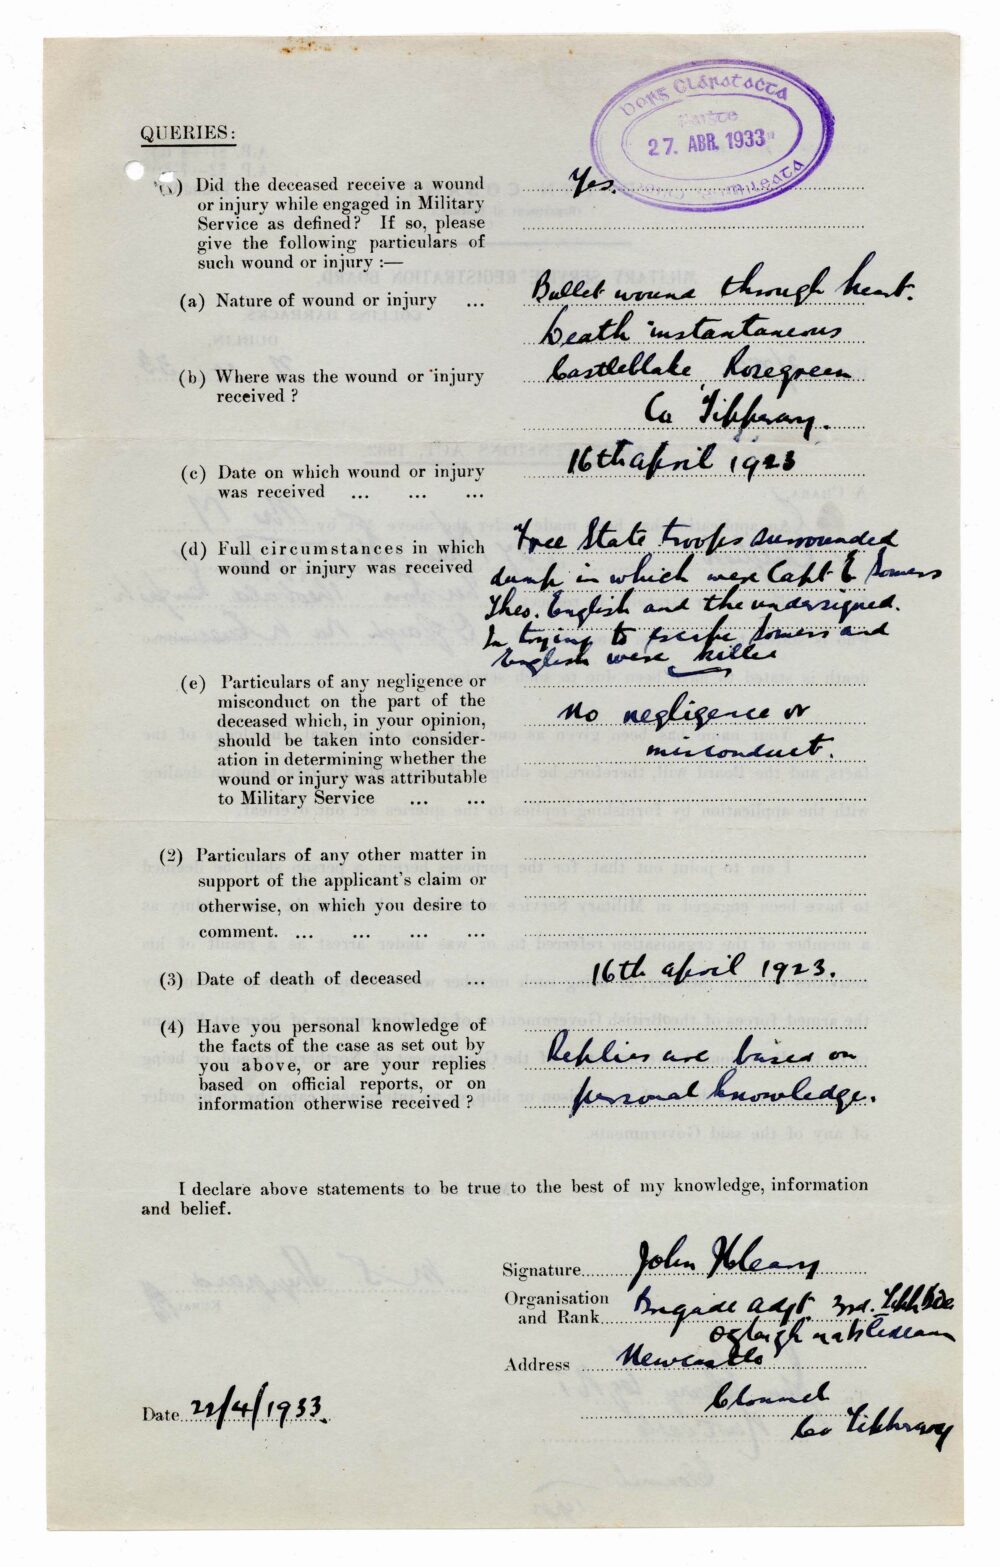 27. ABR. 1933
QUERIES:
Did the deceased receive a wound
or injury while engaged in Military
Service as defined? If so, please
give the following particulars of
such wound or injury :—
Yes.
(a) Nature of wound or injury ...
Bullet wound through heart.
Death instantaneous
(b) Where was the wound or injury
received ?
Castleblake, Rosegreen
Co Tipperary.
(c) Date on which wound or injury
was received ... ... ...
16th april 1923
(d) Full circumstances in which
wound or injury was received
Free State troops surrounded
dump in which were Capt Somers
Theo. English and the undersigned.
In trying to escape Somers and
English were killed
(e) Particulars of any negligence or
misconduct on the part of the
deceased which, in your opinion,
should be taken into consider-
ation in determining whether the
wound or injury was attributable
to Military Service ... ...
No negligence or
misconduct.
(2) Particulars of any other matter in
support of the applicant's claim or
otherwise, on which you desire to
comment. ... ... ... ...
(3) Date of death of deceased ...
16th april 1923.
(4) Have you personal knowledge of
the facts of the case as set out by
you above, or are your replies
based on official reports, or on
information otherwise received ?
Replies are based on
personal knowledge.
I declare above statements to be true to the best of my knowledge, information
and belief.
Signature John
Organisation
and Rank Brigade Adjt 3rd. Tipp Bde
Address Newcastle
Clonmel
Co Tipperary
Date 22/4/1933.